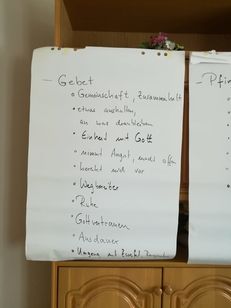 – Gebet
• Gemeinschaft, Zusammenhalt
• etwas aushalten,
an was dranbleiben
• Einheit mit Gott
• nimmt Angst, macht offen
• bereitet mich vor
• Wegbereiter
• Ruhe
• Gottvertrauen
• Ausdauer
• Umgang mit
– Pfin